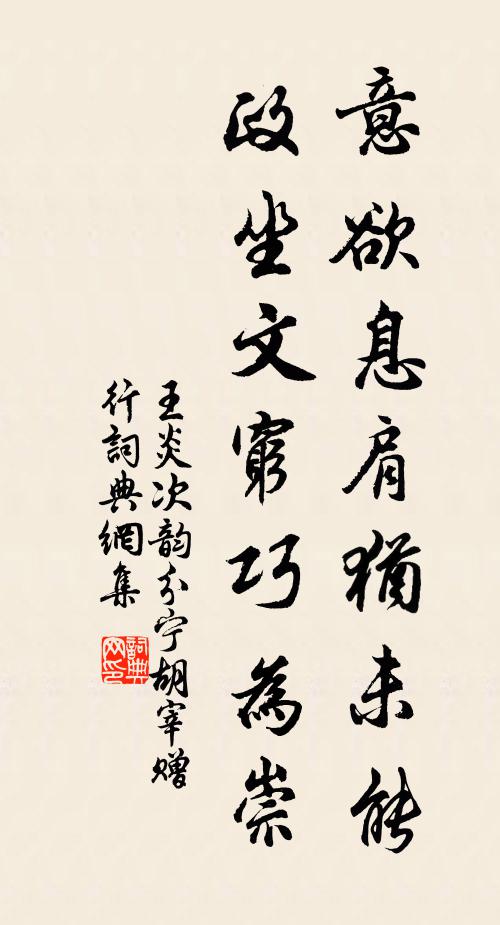 意欲息肩猶未能
政坐文窮巧為祟
王炎次韵分宁胡宰赠
行詞典網集
詞典
网印